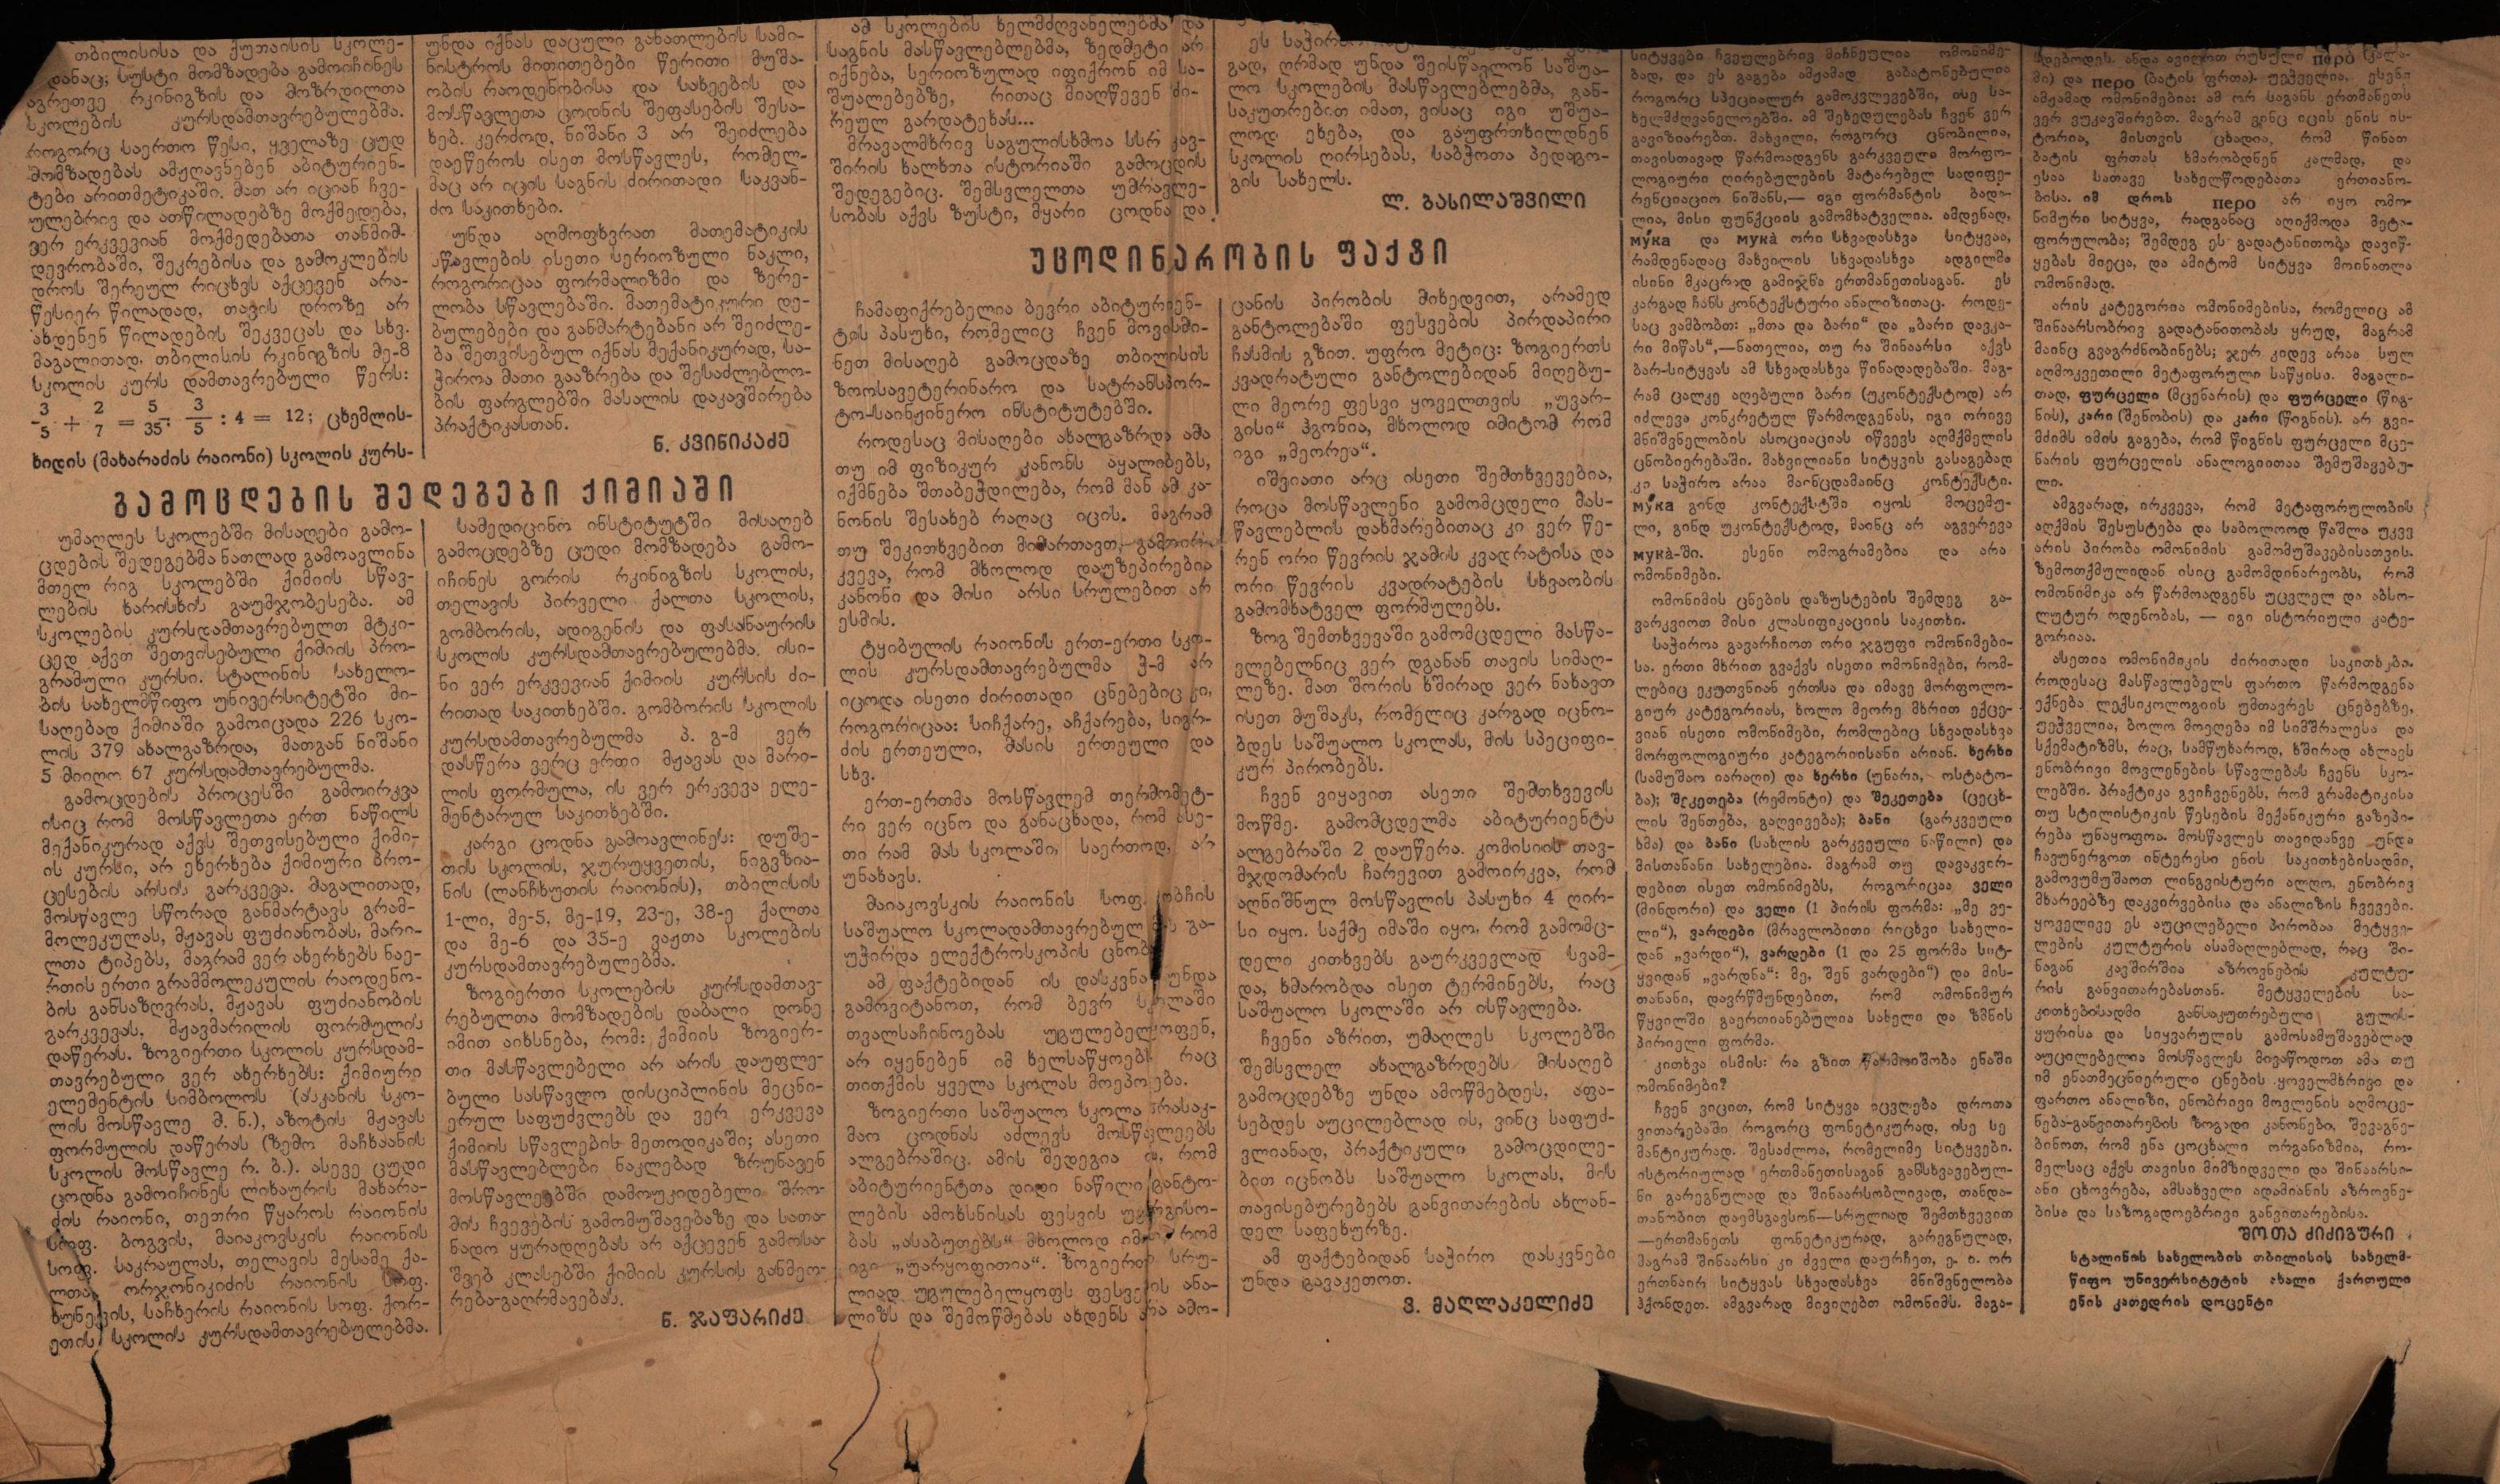 თბილისისა და ქუთაისის სკოლე-
დანაც; სუსტი მომზადება გამოიჩინეს
აგრეთვე რკინიგზის და მოზრდილთა
სკოლების კურსდამთავრებულებმა.
როგორც საერთო წესი, ყველაზე ცუდ
მომზადებას ამჟღავნებენ აბიტურიენ-
ტები არითმეტიკაში. მათ არ იციან ჩვე-
ულებრივ და ათწილადებზე მოქმედება,
ვერ ერკვევიან მოქმედებათა თანმიმ-
დევრობაში, შეკრებისა და გამოკლების
დროს შერეულ რიცხვს აქცევენ არა-
წესიერ წილადად, თავის დროზე არ
ახდენენ წილადების შეკვეცას და სხვ.
მაგალითად. თბილისის რკინიგზის მე-8
სკოლის კურს დამთავრებული წერს:
3/5 + 2/7 = 5/35; 3/5 : 4 = 12; ცხემლის-
ხიდის (მახარაძის რაიონი) სკოლის კურს-
უნდა იქნას დაცული განათლების სამი-
ნისტროს მითითებები წერითი მუშა-
ობის რაოდენობისა და სახეების და
მოსწავლეთა ცოდნის შეფასების შესა-
ხებ. კერძოდ, ნიშანი 3 არ შეიძლება
დაეწეროს ისეთ მოსწავლეს, რომელ-
მაც არ იცის საგნის ძირითადი საკვან-
ძო საკითხები.
უნდა აღმოფხვრათ მათემატიკის
სწავლების ისეთი სერიოზული ნაკლი,
როგორიცაა ფორმალიზმი და ზერე-
ლობა სწავლებაში. მათემატიკური დე-
ბულებები და განმარტებანი არ შეიძლე-
ბა შეთვისებულ იქნას მექანიკურად, სა-
ჭიროა მათი გააზრება და შესაძლებლო-
ბის ფარგლებში მასალის დაკავშირება
პრაქტიკასთან.
ნ. კვინიკაძე
გამოცდების შედეგები ქიმიაში
უმაღლეს სკოლებში მისაღები გამო-
ცდების შედეგებმა ნათლად გამოავლინა
მთელ რიგ სკოლებში ქიმიის სწავ-
ლების ხარისხის გაუმჯობესება. ამ
სკოლების კურსდამთავრებულთ მტკი-
ცედ აქვთ შეთვისებული ქიმიის პრო-
გრამული კურსი. სტალინის სახელო-
ბის სახელმწიფო უნივერსიტეტში მი-
საღებად ქიმიაში გამოიცადა 226 სკო-
ლის 379 ახალგაზრდა, მათგან ნიშანი
5 მიიღო 67 კურსდამთავრებულმა.
გამოცდების პროცესში გამოირკვა
ისიც რომ მოსწავლეთა ერთ ნაწილს
მექანიკურად აქვს შეთვისებული ქიმი-
ის კურსი, არ ეხერხება ქიმიური პრო-
ცესების არსის გარკვევა. მაგალითად,
მოსწავლე სწორად განმარტავს გრამ-
მოლეკულას, მჟავას ფუძიანობას, მარი-
ლთა ტიპებს, მაგრამ ვერ ახერხებს ნაე-
რთის ერთი გრამმოლეკულის რაოდენო-
ბის განსაზღვრას, მჟავას ფუძიანობის
გარკვევას, მჟავმარილის ფორმულის
დაწერას. ზოგიერთი სკოლის კურსდამ-
თავრებული ვერ ახერხებს: ქიმიური
ელემენტის სიმბოლოს (ასკანის სკო-
ლის მოსწავლე მ. ნ.), აზოტის მჟავას
ფორმულის დაწერას (ზემო მაჩხაანის
სკოლის მოსწავლე რ. ბ.). ასევე ცუდი
ცოდნა გამოიჩინეს ლიხაურის მახარა-
ძის რაიონი, თეთრი წყაროს რაიონის
სოფ. ბოგვის, მაიაკოვსკის რაიონის
სოფ. საკრაულას, თელავის მესამე ქა-
ლთა, ორჯონიკიძის რაიონის სოფ.
ხუნევის, საჩხერის რაიონის სოფ. ქორ-
ეთის სკოლის კურსდამთავრებულებმა.
სამედიცინო ინსტიტუტში მისაღებ
გამოცდებზე ცუდი მომზადება გამო-
იჩინეს გორის რკინიგზის სკოლის,
თელავის პირველი ქალთა სკოლის,
გომბორის, ადიგენის და ფასანაურის
სკოლის კურსდამთავრებულებმა. ისი-
ნი ვერ ერკვევიან ქიმიის კურსის ძი-
რითად საკითხებში. გომბორის სკოლის
კურსდამთავრებულმა პ. გ-მ ვერ
დასწერა ვერც ერთი მჟავას და მარი-
ლის ფორმულა, ის ვერ ერკვევა ელე-
მენტარულ საკითხებში.
კარგი ცოდნა გამოავლინეს: დუშე-
თის სკოლის, ჯურუყვეთის, ნიგვზია-
ნის (ლანჩხუთის რაიონის), თბილისის
1-ლი, მე-5, მე-19, 23-ე, 38-ე ქალთა
და მე-6 და 35-ე ვაჟთა სკოლების
კურსდამთავრებულებმა.
ზოგიერთი სკოლების კურსდამთავ-
რებულთა მომზადების დაბალი დონე
იმით აიხსნება, რომ: ქიმიის ზოგიერ-
თი მასწავლებელი არ არის დაუფლე-
ბული სასწავლო დისციპლინის მეცნი-
ერულ საფუძვლებს და ვერ ერკვევა
ქიმიის სწავლების მეთოდიკაში; ასეთი
მასწავლებლები ნაკლებად ზრუნავენ
მოსწავლეებში დამოუკიდებელი შრო-
მის ჩვევების გამომუშავებაზე და სათა-
ნადო ყურადღებას არ აქცევენ გამოსა-
შვებ კლასებში ქიმიის კურსის განმეო-
რება-გაღრმავებას.
ნ. ჯაფარიძე
ამ სკოლების ხელმძღვანელებმა და
საგნის მასწავლებლებმა, ზედმეტი არ
იქნება, სერიოზულად იფიქრონ იმ სა-
შუალებებზე, რითაც მიაღწევენ ძი-
რეულ გარდატეხას...
მრავალმხრივ საგულისხმოა სსრ კავ-
შირის ხალხთა ისტორიაში გამოცდის
შედეგებიც. შემსვლელთა უმრავლე-
სობას აქვს ზუსტი, მყარი ცოდნა და
ეს
გად, ღრმად უნდა შეისწავლონ საშუა-
ლო სკოლების მასწავლებლებმა, გან-
საკუთრებით იმათ, ვისაც იგი უშუა-
ლოდ ეხება, და გაუფრთხილდნენ
სკოლის ღირსებას, საბჭოთა პედაგო-
გის სახელს.
ლ. ბასილაშვილი
უცოდინარობის ფაქტი
ჩამაფიქრებელია ბევრი აბიტურიენ-
ტის პასუხი, რომელიც ჩვენ მოვისმი-
ნეთ მისაღებ გამოცდაზე თბილისის
ზოოსავეტერინარო და სატრანსპორ-
ტო-საინჟინერო ინსტიტუტებში.
როდესაც მისაღები ახალგაზრდა ამა
თუ იმ ფიზიკურ კანონს აყალიბებს,
იქმნება შთაბეჭდილება, რომ მან ამ კა-
ნონის შესახებ რაღაც იცის. მაგრამ
თუ შეკითხვებით მიმართავთ, გამოირ-
კვევა, რომ მხოლოდ დაუზეპირებია
კანონი და მისი არსი სრულებით არ
ესმის.
ტყიბულის რაიონის ერთ-ერთი სკო-
ლის კურსდამთავრებულმა ჭ-მ არ
იცოდა ისეთი ძირითადი ცნებებიც კი,
როგორიცაა: სიჩქარე, აჩქარება, სიგრ-
ძის ერთეული, მასის ერთეული და
სხვ.
ერთ-ერთმა მოსწავლემ თერმომეტ-
რი ვერ იცნო და განაცხადა, რომ ასე-
თი რამ მას სკოლაში, საერთოდ, არ
უნახავს.
მაიაკოვსკის რაიონის სოფ. ობჩის
საშუალო სკოლადამთავრებულ გა-
უჭირდა ელექტროსკოპის ცნობ
ამ ფაქტებიდან ის დასკვნა უნდა
გამოვიტანოთ, რომ ბევრ სკოლაში
თვალსაჩინოებას უგულებელყოფენ,
არ იყენებენ იმ ხელსაწყოებს რაც
თითქმის ყველა სკოლას მოეპოვება.
ზოგიერთი საშუალო სკოლა არასაკ-
მაო ცოდნას აძლევს მოსწავლეებს
ალგებრაშიც. ამის შედეგია ის, რომ
აბიტურიენტთა დიდი ნაწილი განტო-
ლების ამოხსნისას ფესვის უვარგისო-
ბას „ასაბუთებს“ მხოლოდ იმით რომ
იგი „უარყოფითია“. ზოგიერთი სრუ-
ლიად უგულებელყოფს ფესვების ანა-
ლიზს და შემოწმებას ახდენს არა ამო-
ცანის პირობის მიხედვით, არამედ
განტოლებაში ფესვების პირდაპირი
ჩასმის გზით. უფრო მეტიც: ზოგიერთს
კვადრატული განტოლებიდან მიღებუ-
ლი მეორე ფესვი ყოველთვის „უვარ-
გისი“ ჰგონია, მხოლოდ იმიტომ რომ
იგი „მეორეა“.
იშვიათი არც ისეთი შემთხვევებია,
როცა მოსწავლენი გამომცდელი მას-
წავლებლის დახმარებითაც კი ვერ წე-
რენ ორი წევრის ჯამის კვადრატისა და
ორი წევრის კვადრატების სხვაობის
გამომხატველ ფორმულებს.
ზოგ შემთხვევაში გამომცდელი მასწა-
ვლებელნიც ვერ დგანან თავის სიმაღ-
ლეზე. მათ შორის ხშირად ვერ ნახავთ
ისეთ მუშაკს, რომელიც კარგად იცნო-
ბდეს საშუალო სკოლას, მის სპეციფი-
კურ პირობებს.
ჩვენ ვიყავით ასეთი შემთხვევის
მოწმე. გამომცდელმა აბიტურიენტს
ალგებრაში 2 დაუწერა. კომისიის თავ-
მჯდომარის ჩარევით გამოირკვა, რომ
აღნიშნულ მოსწავლის პასუხი 4 ღირ-
სი იყო. საქმე იმაში იყო, რომ გამომც-
დელი კითხვებს გაურკვევლად სვამ-
და, ხმარობდა ისეთ ტერმინებს, რაც
საშუალო სკოლაში არ ისწავლება.
ჩვენი აზრით, უმაღლეს სკოლებში
შემსვლელ ახალგაზრდებს მისაღებ
გამოცდებზე უნდა ამოწმებდეს, აფა-
სებდეს აუცილებლად ის, ვინც საფუძ-
ვლიანად, პრაქტიკული გამოცდილე-
ბით იცნობს საშუალო სკოლას, მის
თავისებურებებს განვითარების ახლან-
დელ საფეხურზე.
ამ ფაქტებიდან საჭირო დასკვნები
უნდა გავაკეთოთ.
ვ. მაღლაკელიძე
სიტყვები ჩვეულებრივ მიჩნეულია ომონიმე-
ბად, და ეს გაგება ამჟამად გაბატონებულია
როგორც სპეციალურ გამოკვლევებში, ისე სა-
ხელმძღვანელოებში. ამ შეხედულებას ჩვენ ვერ
გავიზიარებთ. მახვილი, როგორც ცნობილია,
თავისთავად წარმოადგენს გარკვეული მორფო-
ლოგიური ღირებულების მატარებელ სადიფე-
რენციაციო ნიშანს,— იგი ფორმანტის ბადა-
ლია, მისი ფუნქციის გამომხატველია. ამდენად,
му́ка და мука̀ ორი სხვადასხვა სიტყვაა,
რამდენადაც მახვილის სხვადასხვა ადგილმა
ისინი მკაცრად გამიჯნა ერთმანეთისაგან. ეს
კარგად ჩანს კონტექსტური ანალიზითაც. როდე-
საც ვამბობთ: „მთა და ბარი“ და „ბარი დავკა-
რი მიწას“,—ნათელია, თუ რა შინაარსი აქვს
ბარ-სიტყვას ამ სხვადასხვა წინადადებაში. მაგ-
რამ ცალკე აღებული ბარი (უკონტექსტოდ) არ
იძლევა კონკრეტულ წარმოდგენას, იგი ორივე
მნიშვნელობის ასოციაციას იწვევს აღმქმელის
ცნობიერებაში. მახვილიანი სიტყვის გასაგებად
კი საჭირო არაა მაინცდამაინც კონტექსტი.
му́ка გინდ კონტექსტში იყოს მოცემუ-
ლი, გინდ უკონტექსტოდ, მაინც არ აგვერევა
мука̀-ში. ესენი ომოგრამებია და არა
ომონიმები.
ომონიმის ცნების დაზუსტების შემდეგ გა-
ვარკვიოთ მისი კლასიფიკაციის საკითხი.
საჭიროა გავარჩიოთ ორი ჯგუფი ომონიმები-
სა. ერთი მხრით გვაქვს ისეთი ომონიმები, რომ-
ლებიც ეკუთვნიან ერთსა და იმავე მორფოლო-
გიურ კატეგორიას, ხოლო მეორე მხრით ექცე-
ვიან ისეთი ომონიმები, რომლებიც სხვადასხვა
მორფოლოგიური კატეგორიისანი არიან. ხერხი
(სამუშაო იარაღი) და ხერხი (უნარი, ოსტატო-
ბა); შეკეთება (რემონტი) და შეკეთება (ცეცხ-
ლის შენთება, გაღვივება); ბანი (გარკვეული
ხმა) და ბანი (სახლის გარკვეული ნაწილი) და
მისთანანი სახელებია. მაგრამ თუ დავაკვირ-
დებით ისეთ ომონიმებს, როგორიცაა ველი
(მინდორი) და ველი (1 პირის ფორმა: „მე ვე-
ლი“), ვარდები (მრავლობითი რიცხვი სახელი-
დან „ვარდი“), ვარდები (1 და 25 ფორმა სიტ-
ყვიდან „ვარდნა“: მე, შენ ვარდები“) და მის-
თანანი, დავრწმუნდებით, რომ ომონიმურ
წყვილში გაერთიანებულია სახელი და ზმნის
პირიელი ფორმა.
კითხვა ისმის: რა გზით წარმოიშობა ენაში
ომონიმები?
ჩვენ ვიცით, რომ სიტყვა იცვლება დროთა
ვითარებაში როგორც ფონეტიკურად, ისე სე
მანტიკურად. შესაძლოა, რომელიმე სიტყვები.
ისტორიულად ერთმანეთისაგან განსხვავებულ-
ნი გარეგნულად და შინაარსობლივად, თანდა-
თანობით დაემსგავსონ—სრულიად შემთხვევით
—ერთმანეთს ფონეტიკურად, გარეგნულად,
მაგრამ შინაარსი კი ძველი დაურჩეთ, ე. ი. ორ
ერთნაირ სიტყვას სხვადასხვა მნიშვნელობა
ჰქონდეთ. ამგვარად მივიღებთ ომონიმს. მაგა-
რუსული перо
მი) და перо (ბატის ფრთა). უეჭველია, ესენი
ამჟამად ომონიმებია: ამ ორ საგანს ერთმანეთს
ვერ ვუკავშირებთ. მაგრამ ვინც იცის ენის ის-
ტორია, მისთვის ცხადია, რომ წინათ
ბატის ფრთას ხმარობდნენ კალმად, და
ესაა სათავე სახელწოდებათა ერთიანო-
ბისა. იმ დროს перо არ იყო ომო-
ნიმური სიტყვა, რადგანაც აღიქმოდა მეტა-
ფორულობა; შემდეგ ეს გადატანითობა დავიწ-
ყებას მიეცა, და ამიტომ სიტყვა მოინათლა
ომონიმად.
არის კატეგორია ომონიმებისა, რომელიც ამ
შინაარსობრივ გადატანითობას ყრუდ, მაგრამ
მაინც გვაგრძნობინებს; ჯერ კიდევ არაა სულ
აღმოკვეთილი მეტაფორული საწყისი. მაგალი-
თად, ფურცელი (მცენარის) და ფურცელი (წიგ-
ნის), კარი (შენობის) და კარი (წიგნის). არ გვი-
მძიმს იმის გაგება, რომ წიგნის ფურცელი მცე-
ნარის ფურცელის ანალოგიითაა შემუშავებუ-
ლი.
ამგვარად, ირკვევა, რომ მეტაფორულობის
აღქმის შესუსტება და საბოლოოდ წაშლა უკვე
არის პირობა ომონიმის გამომუშავებისათვის.
ზემოთქმულიდან ისიც გამომდინარეობს, რომ
ომონიმიკა არ წარმოადგენს უცვლელ და აბსო-
ლუტურ ოდენობას, — იგი ისტორიული კატე-
გორიაა.
ასეთია ომონიმიკის ძირითადი საკითხები.
როდესაც მასწავლებელს ფართო წარმოდგენა
ექნება ლექსიკოლოგიის უმთავრეს ცნებებზე,
უეჭველია, ბოლო მოეღება იმ სიმშრალესა და
სქემატიზმს, რაც, სამწუხაროდ, ხშირად ახლავს
ენობრივი მოვლენების სწავლებას ჩვენს სკო-
ლებში. პრაქტიკა გვიჩვენებს, რომ გრამატიკისა
თუ სტილისტიკის წესების მექანიკური გაზეპი-
რება უნაყოფოა. მოსწავლეს თავიდანვე უნდა
ჩავუნერგოთ ინტერესი ენის საკითხებისადმი,
გამოვუმუშაოთ ლინგვისტური ალღო, ენობრივ
მხარეებზე დაკვირვებისა და ანალიზის ჩვევები.
ყოველივე ეს აუცილებელი პირობაა მეტყვე-
ლების კულტურის ასამაღლებლად, რაც ში-
ნაგან კავშირშია აზროვნების კულტუ-
რის განვითარებასთან. მეტყველების სა-
კითხებისადმი განსაკუთრებული გულის-
ყურისა და სიყვარულის გამოსამუშავებლად
აუცილებელია მოსწავლეს მივაწოდოთ ამა თუ
იმ ენათმეცნიერული ცნების ყოველმხრივი და
ფართო ანალიზი, ენობრივი მოვლენის აღმოცე-
ნება-განვითარების ზოგადი კანონები, შევაგნე-
ბინოთ, რომ ენა ცოცხალი ორგანიზმია, რო-
მელსაც აქვს თავისი მიმზიდველი და შინაარსი-
ანი ცხოვრება, ამსახველი ადამიანის აზროვნე-
ბისა და საზოგადოებრივი განვითარებისა.
შოთა ძიძიგური
სტალინის სახელობის თბილისის სახელმ-
წიფო უნივერსიტეტის ახალი ქართული
ენის კათედრის დოცენტი